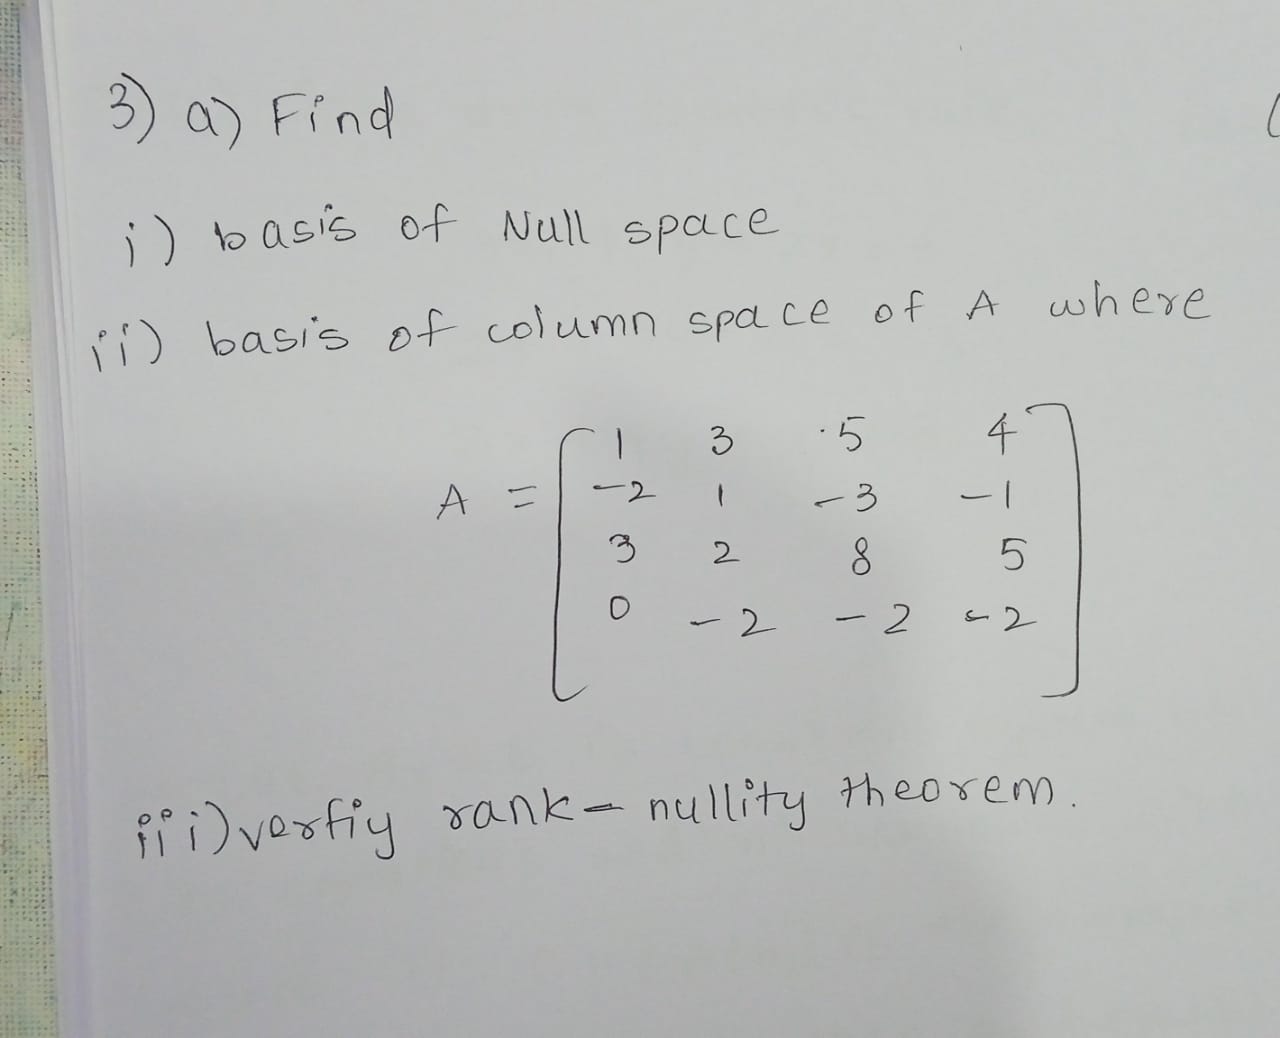 3) a) Find
i) basis of Null space
ii) basis of column space of A where
A = [ 1 3 5 4
-2 1 -3 -1
3 2 8 5
0 -2 -2 -2 ]
iii) verfiy rank-nullity theorem.